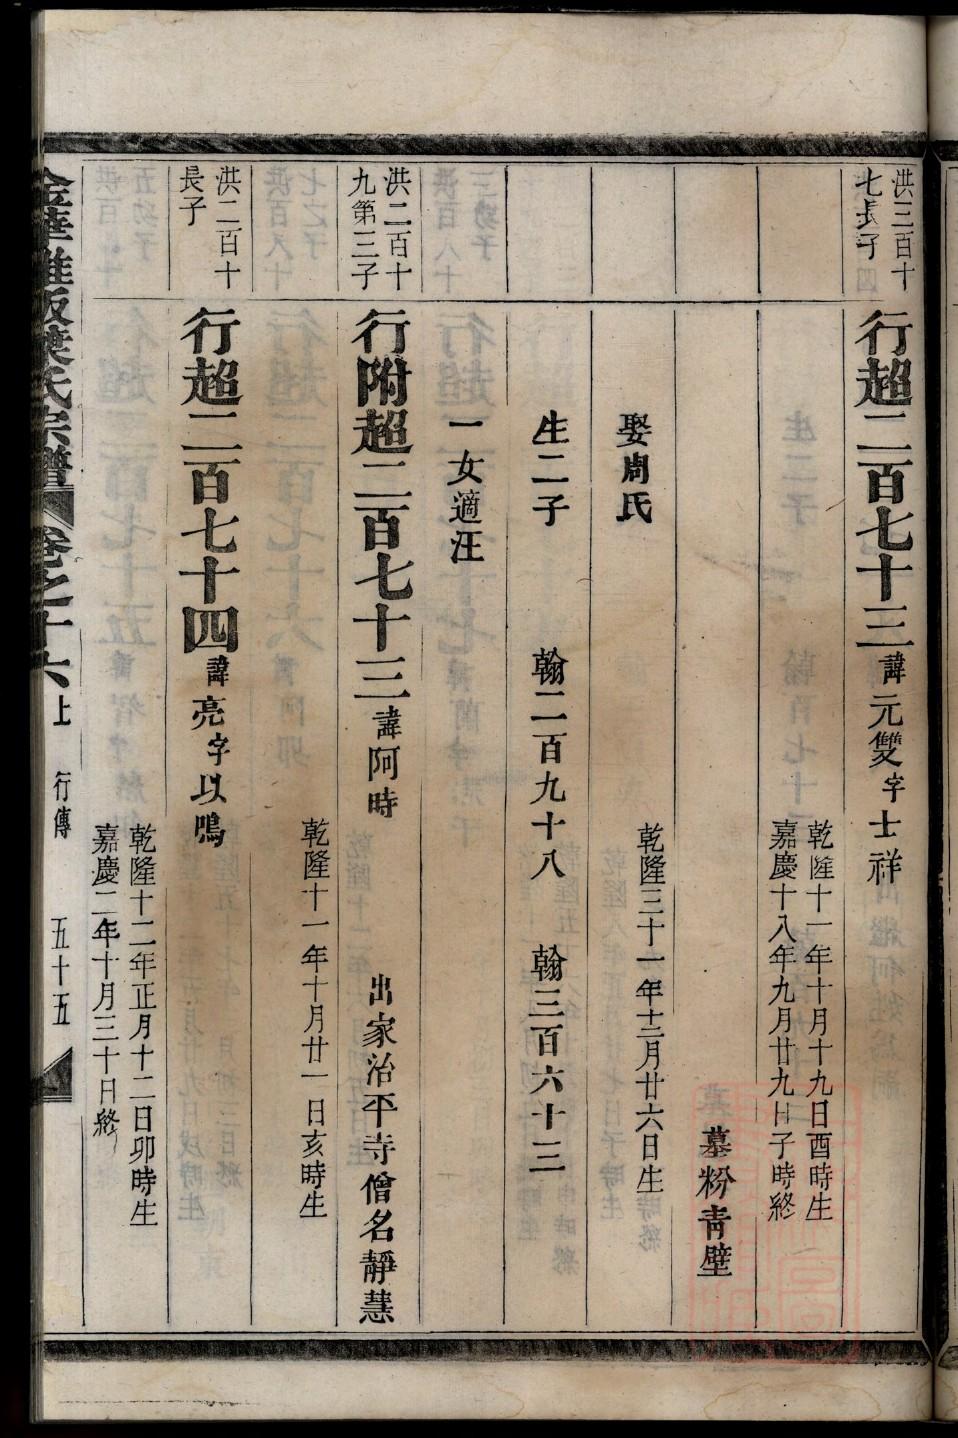 洪三百十
七長子
行超二百七十三諱元雙字士祥
乾隆十一年十月十九日酉時生
嘉慶十八年九月廿九日子時終
墓粉青壁
娶周氏
乾隆三十一年十二月廿六日生
生二子 翰二百九十八 翰三百六十三
一女適汪
洪二百十
九第三子
行附超二百七十三諱阿時 出家治平寺僧名靜慧
乾隆十一年十月廿一日亥時生
洪二百十
長子
行超二百七十四諱亮字以鳴
乾隆十二年正月十二日卯時生
嘉慶二年十月三十日終
金華雅畈葉氏宗譜 卷之十六上 行傳 五十五